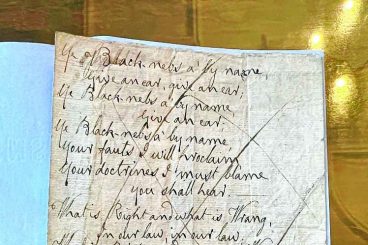 Ye Black-nebs a' by name,
Give an ear, give an ear,
Ye Black-nebs a' by name
Give an ear,
Ye Black-nebs a' by name
Your fau'ts I will proclaim
Your doctrines I must blame
you shall hear.
What is Right and what is Wrang,
In our law, in our law,